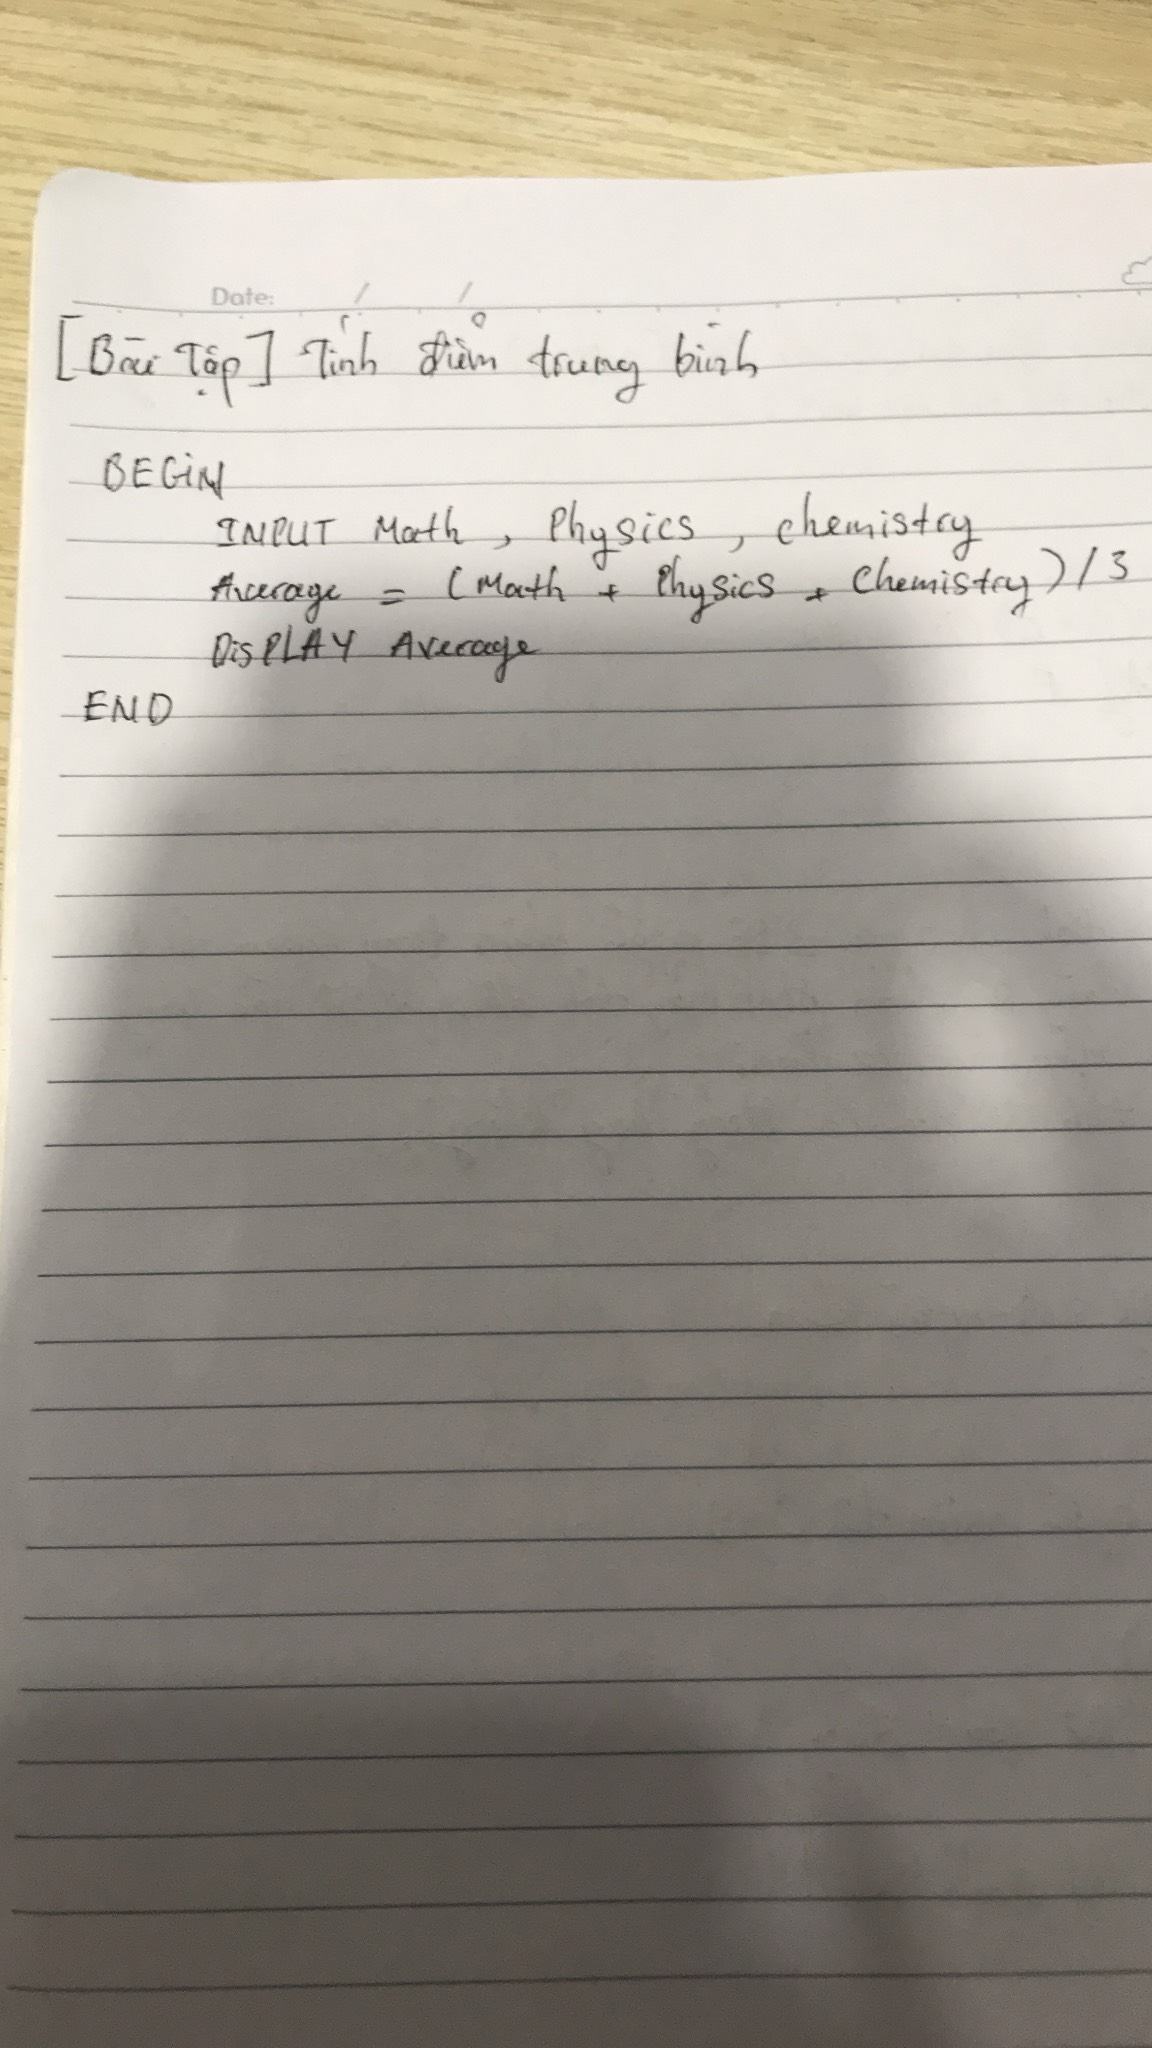 Date: / /
[Bài Tập] Tính điểm trung bình
BEGIN
INPUT Math, Physics, chemistry
Average = (Math + Physics + Chemistry)/3
DISPLAY Average
END